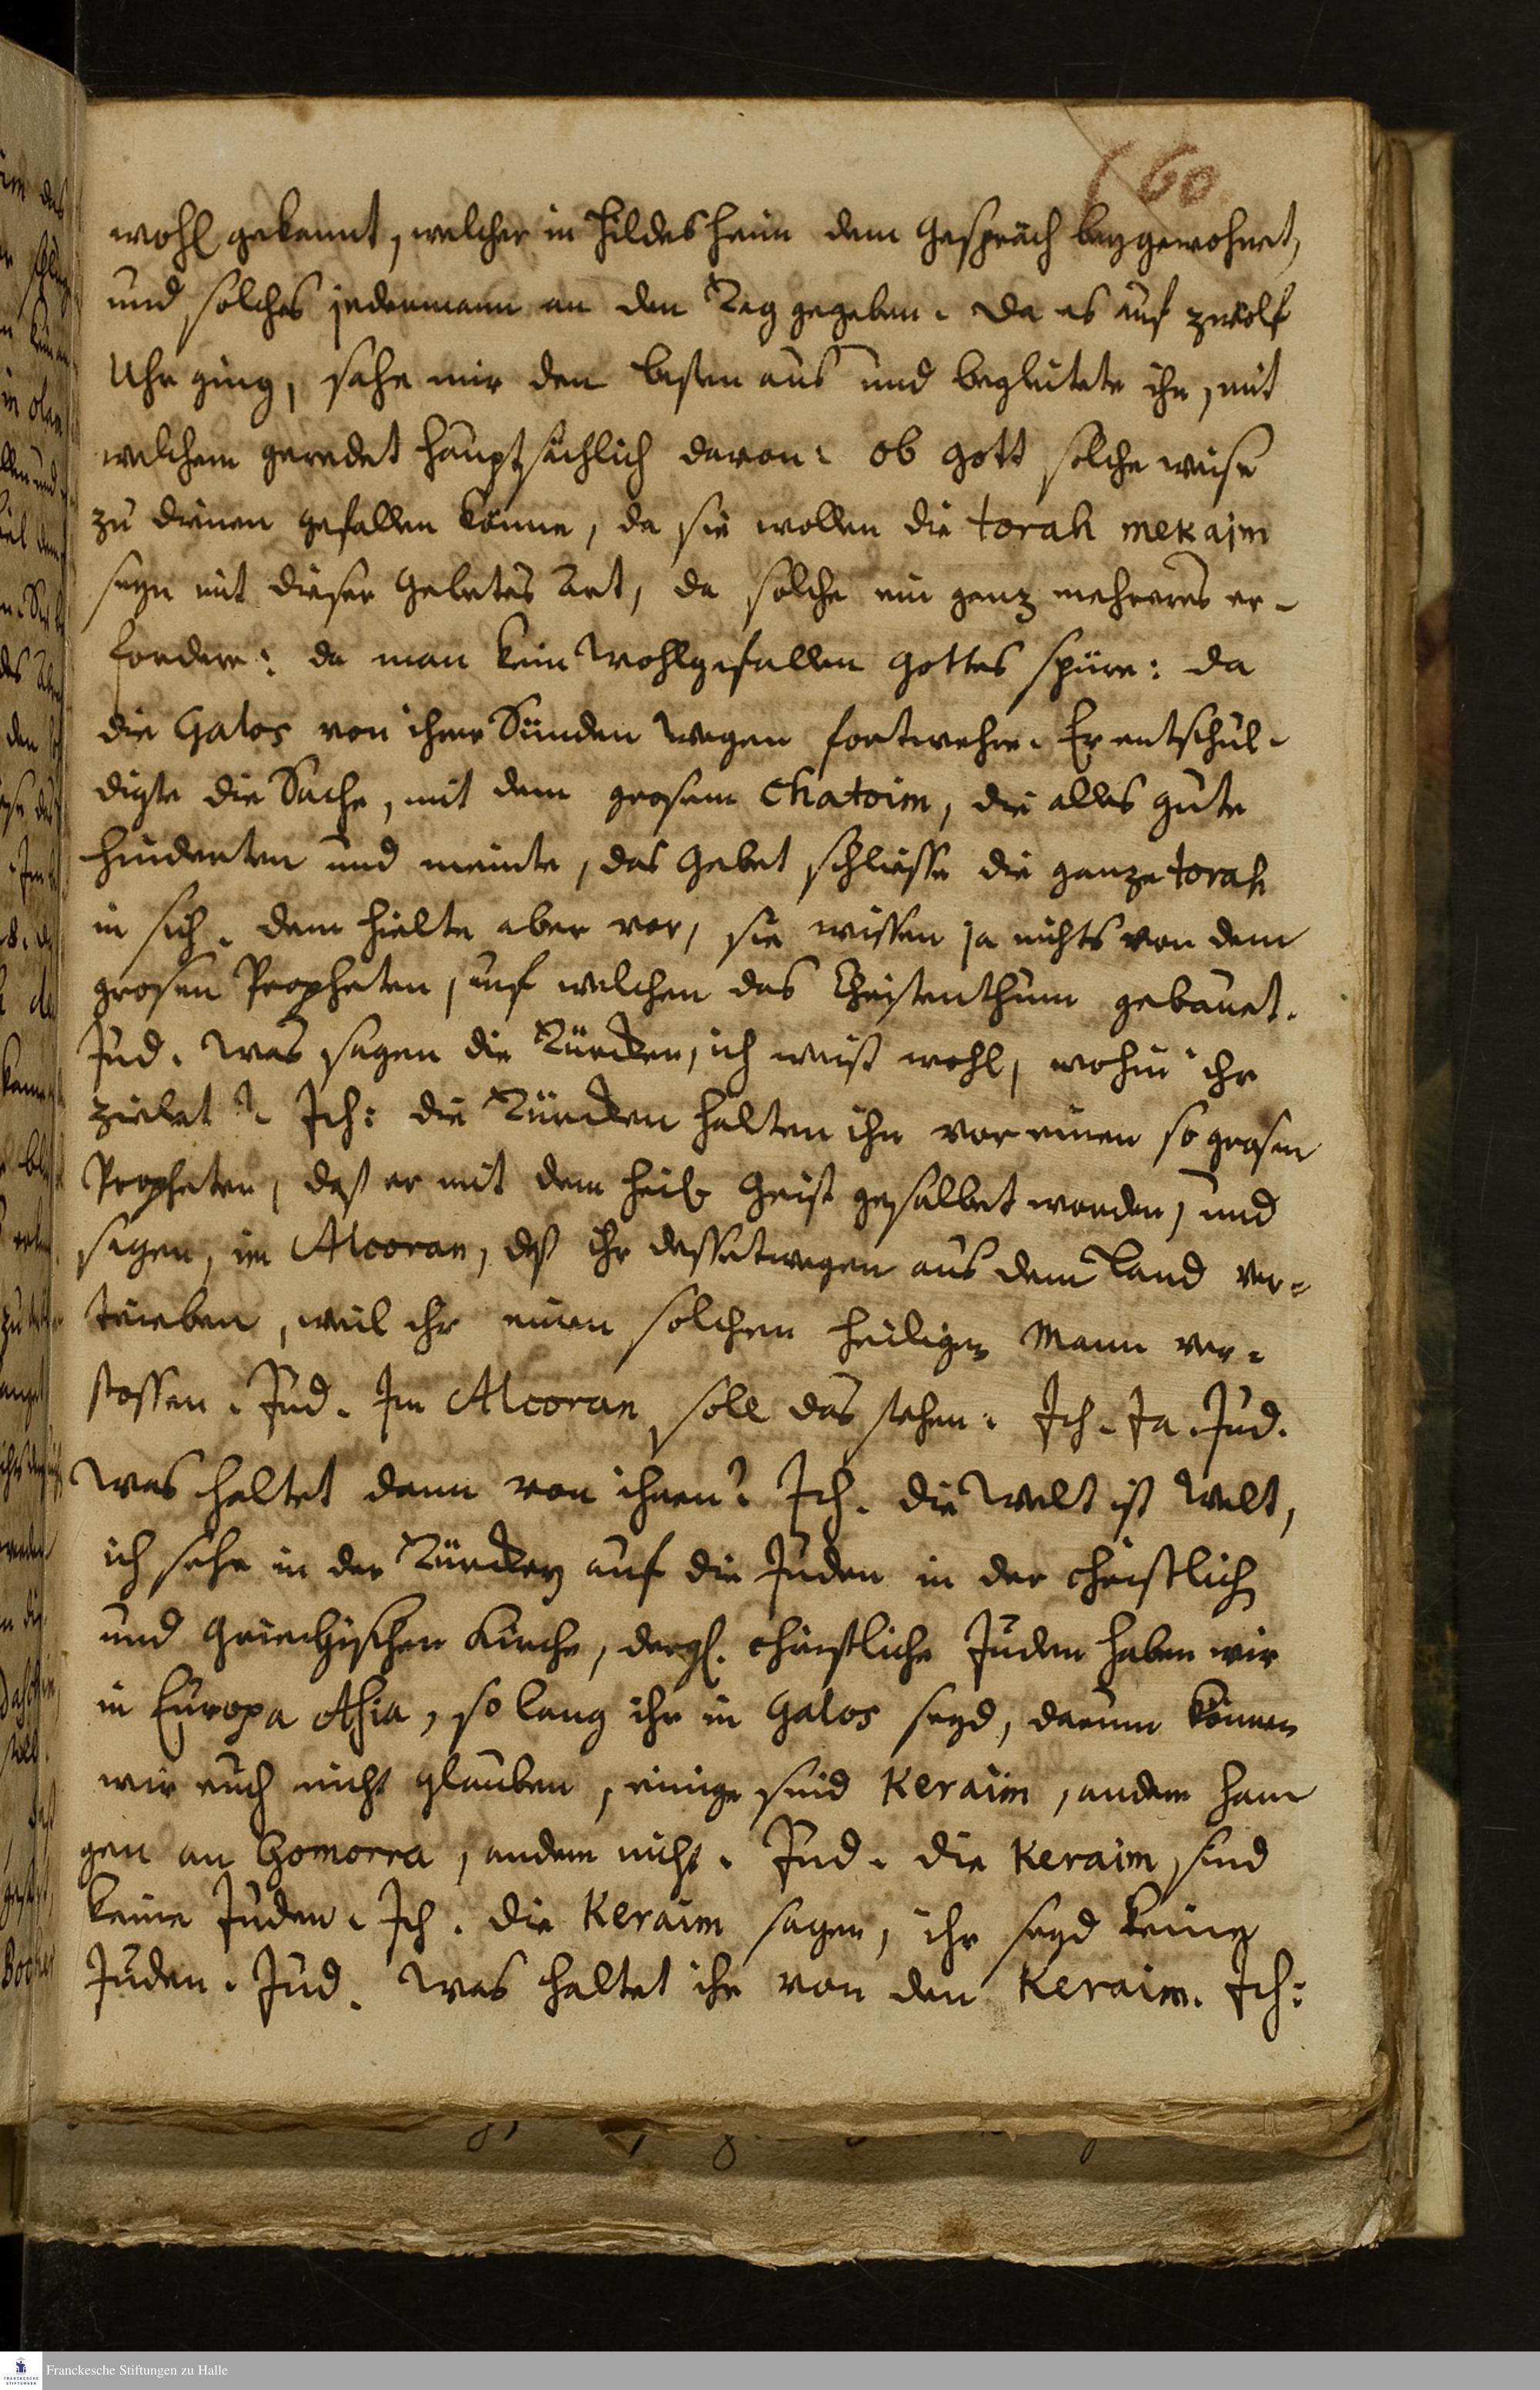 (60
wohl gekennt, welcher in Hildesheim dem Gespräch beygewohnet,
und solches jedermann an den Tag gegeben. Da es auf zwölf
Uhr ging, sahe mir den besten aus und begleitete ihn, mit
welchem geredet hauptsächlich davon: ob Gott solche weise
zu dienen gefallen könne, da sie wollen die torah mekajm
seyn mit dieser Gebetes Art, da solche ein ganz mehreres er-
fordere: da man kein Wohlgefallen Gottes spüre: da
die Galos von ihrer Sünden wegen fortwehre. Er entschul-
digte die Sache, mit dem grosem Chatoim, die alles gute
hinderten und meinte, das Gebet schliesse die ganze torah
in sich. Dem hielte aber vor, sie wissen ja nichts von dem
grosen Propheten, auf welchen das Christenthum gebauet.
Jud. Was sagen die Türcken, ich weiß wohl, wohin ihr
zielet? Ich: die Türcken halten ihn vor einen so grosen
Propheten, daß er mit dem heil. Geist gesalbet worden, und
sagen, im Alcoran, daß ihr dessetwegen aus dem Land ver-
trieben, weil ihr einen solchen heiligen Mann ver-
stossen. Jud. Im Alcoran soll das stehen. Ich. Ja. Jud.
Was haltet dann von ihnen? Ich. die Welt ist Welt,
ich sehe in der Türckey auf die Juden in der christlich
und Griechischen Kirche, dergl. christliche Juden haben wir
in Europa Asia, so lang ihr in Galos seyd, darum können
wir euch nicht glauben, einige sind Keraim, andere han
gen an Gomorra, andere nicht. Jud. die Keraim sind
keine Juden. Ich. die Keraim sagen, ihr seyd keine
Juden. Jud. Was haltet ihr von den Keraim. Ich:
Franckesche Stiftungen zu Halle